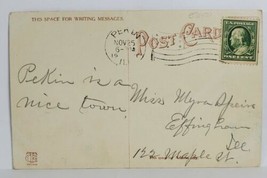 THIS SPACE FOR WRITING MESSAGES.
POST CARD
PEKIN
NOV 25
ILL
Pekin is a
nice town.
Miss Myra Speirs
Effingham
Ill
152 Maple St.